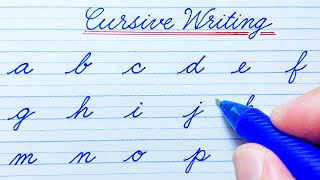 Cursive Writing
a b c d e f
g h i j
m n o p